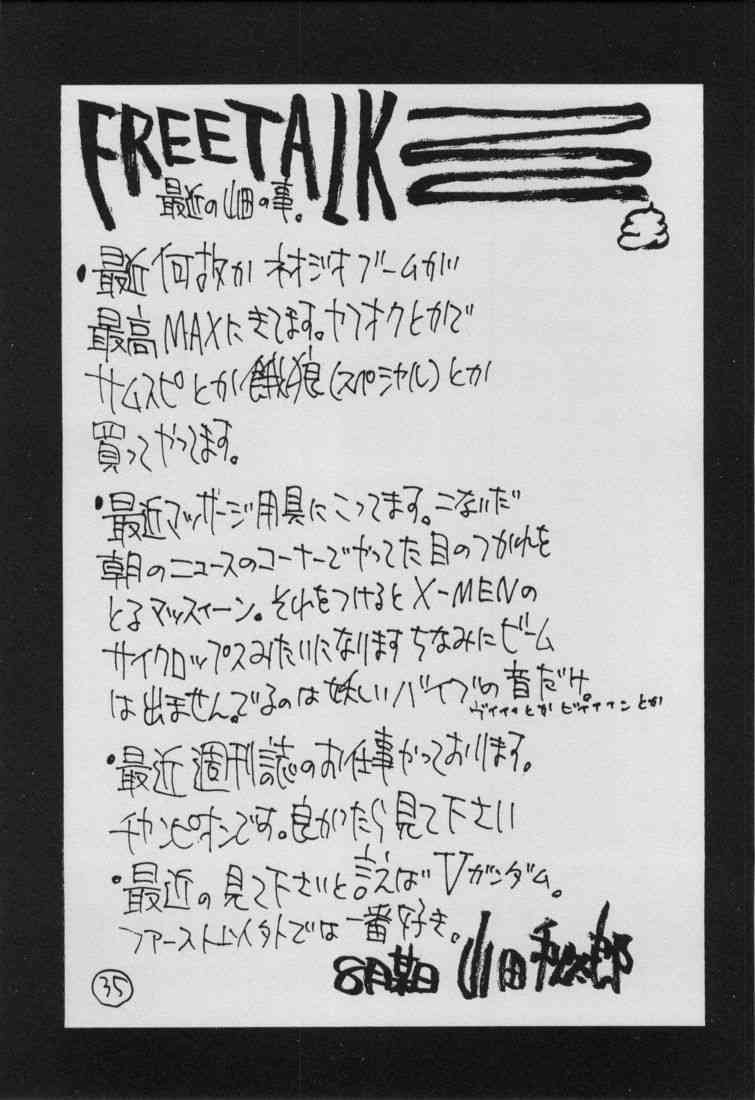 FREETALK
最近の山田の事。
・最近何故かネオジオブームが
最高MAXにきてます。ヤフオクとかで
サムスピとか餓狼(スペシャル)とか
買ってやってます。
・最近マッサージ用具にこってます。こないだ
朝のニュースのコーナーでやってた目のつかれを
とるマッスィーン。それをつけるとX-MENの
サイクロップスみたいになりますちなみにビーム
は出ません。でるのは妖しいバイブの音だけ。
ヴィィィとか ビィィィンとか
・最近週刊誌のお仕事やっております。
チャンピオンです。良かったら見て下さい
・最近の見て下さいと言えばVガンダム。
ファースト以外では一番好き。
8月某日 山田
35